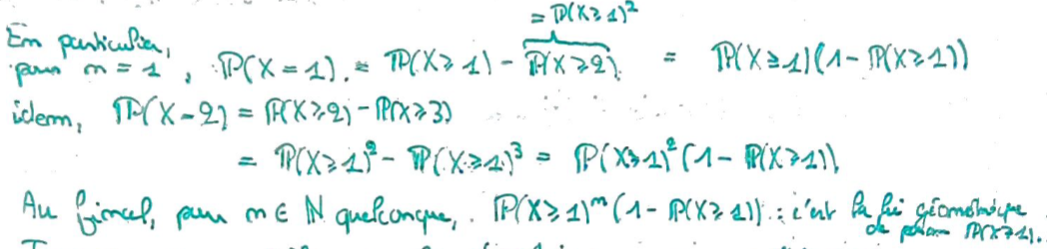 = P(X ≥ 1)²
En particulier,
pour n = 1, P(X = 1) = P(X ≥ 1) - P(X ≥ 2) = P(X ≥ 1)(1 - P(X ≥ 1))
idem, P(X = 2) = P(X ≥ 2) - P(X ≥ 3)
= P(X ≥ 1)² - P(X ≥ 1)³ = P(X ≥ 1)²(1 - P(X ≥ 1)).
Au final, pour n ∈ ℕ quelconque, P(X ≥ 1)ⁿ(1 - P(X ≥ 1)) : c'est la loi géométrique
de P(X ≥ 1).